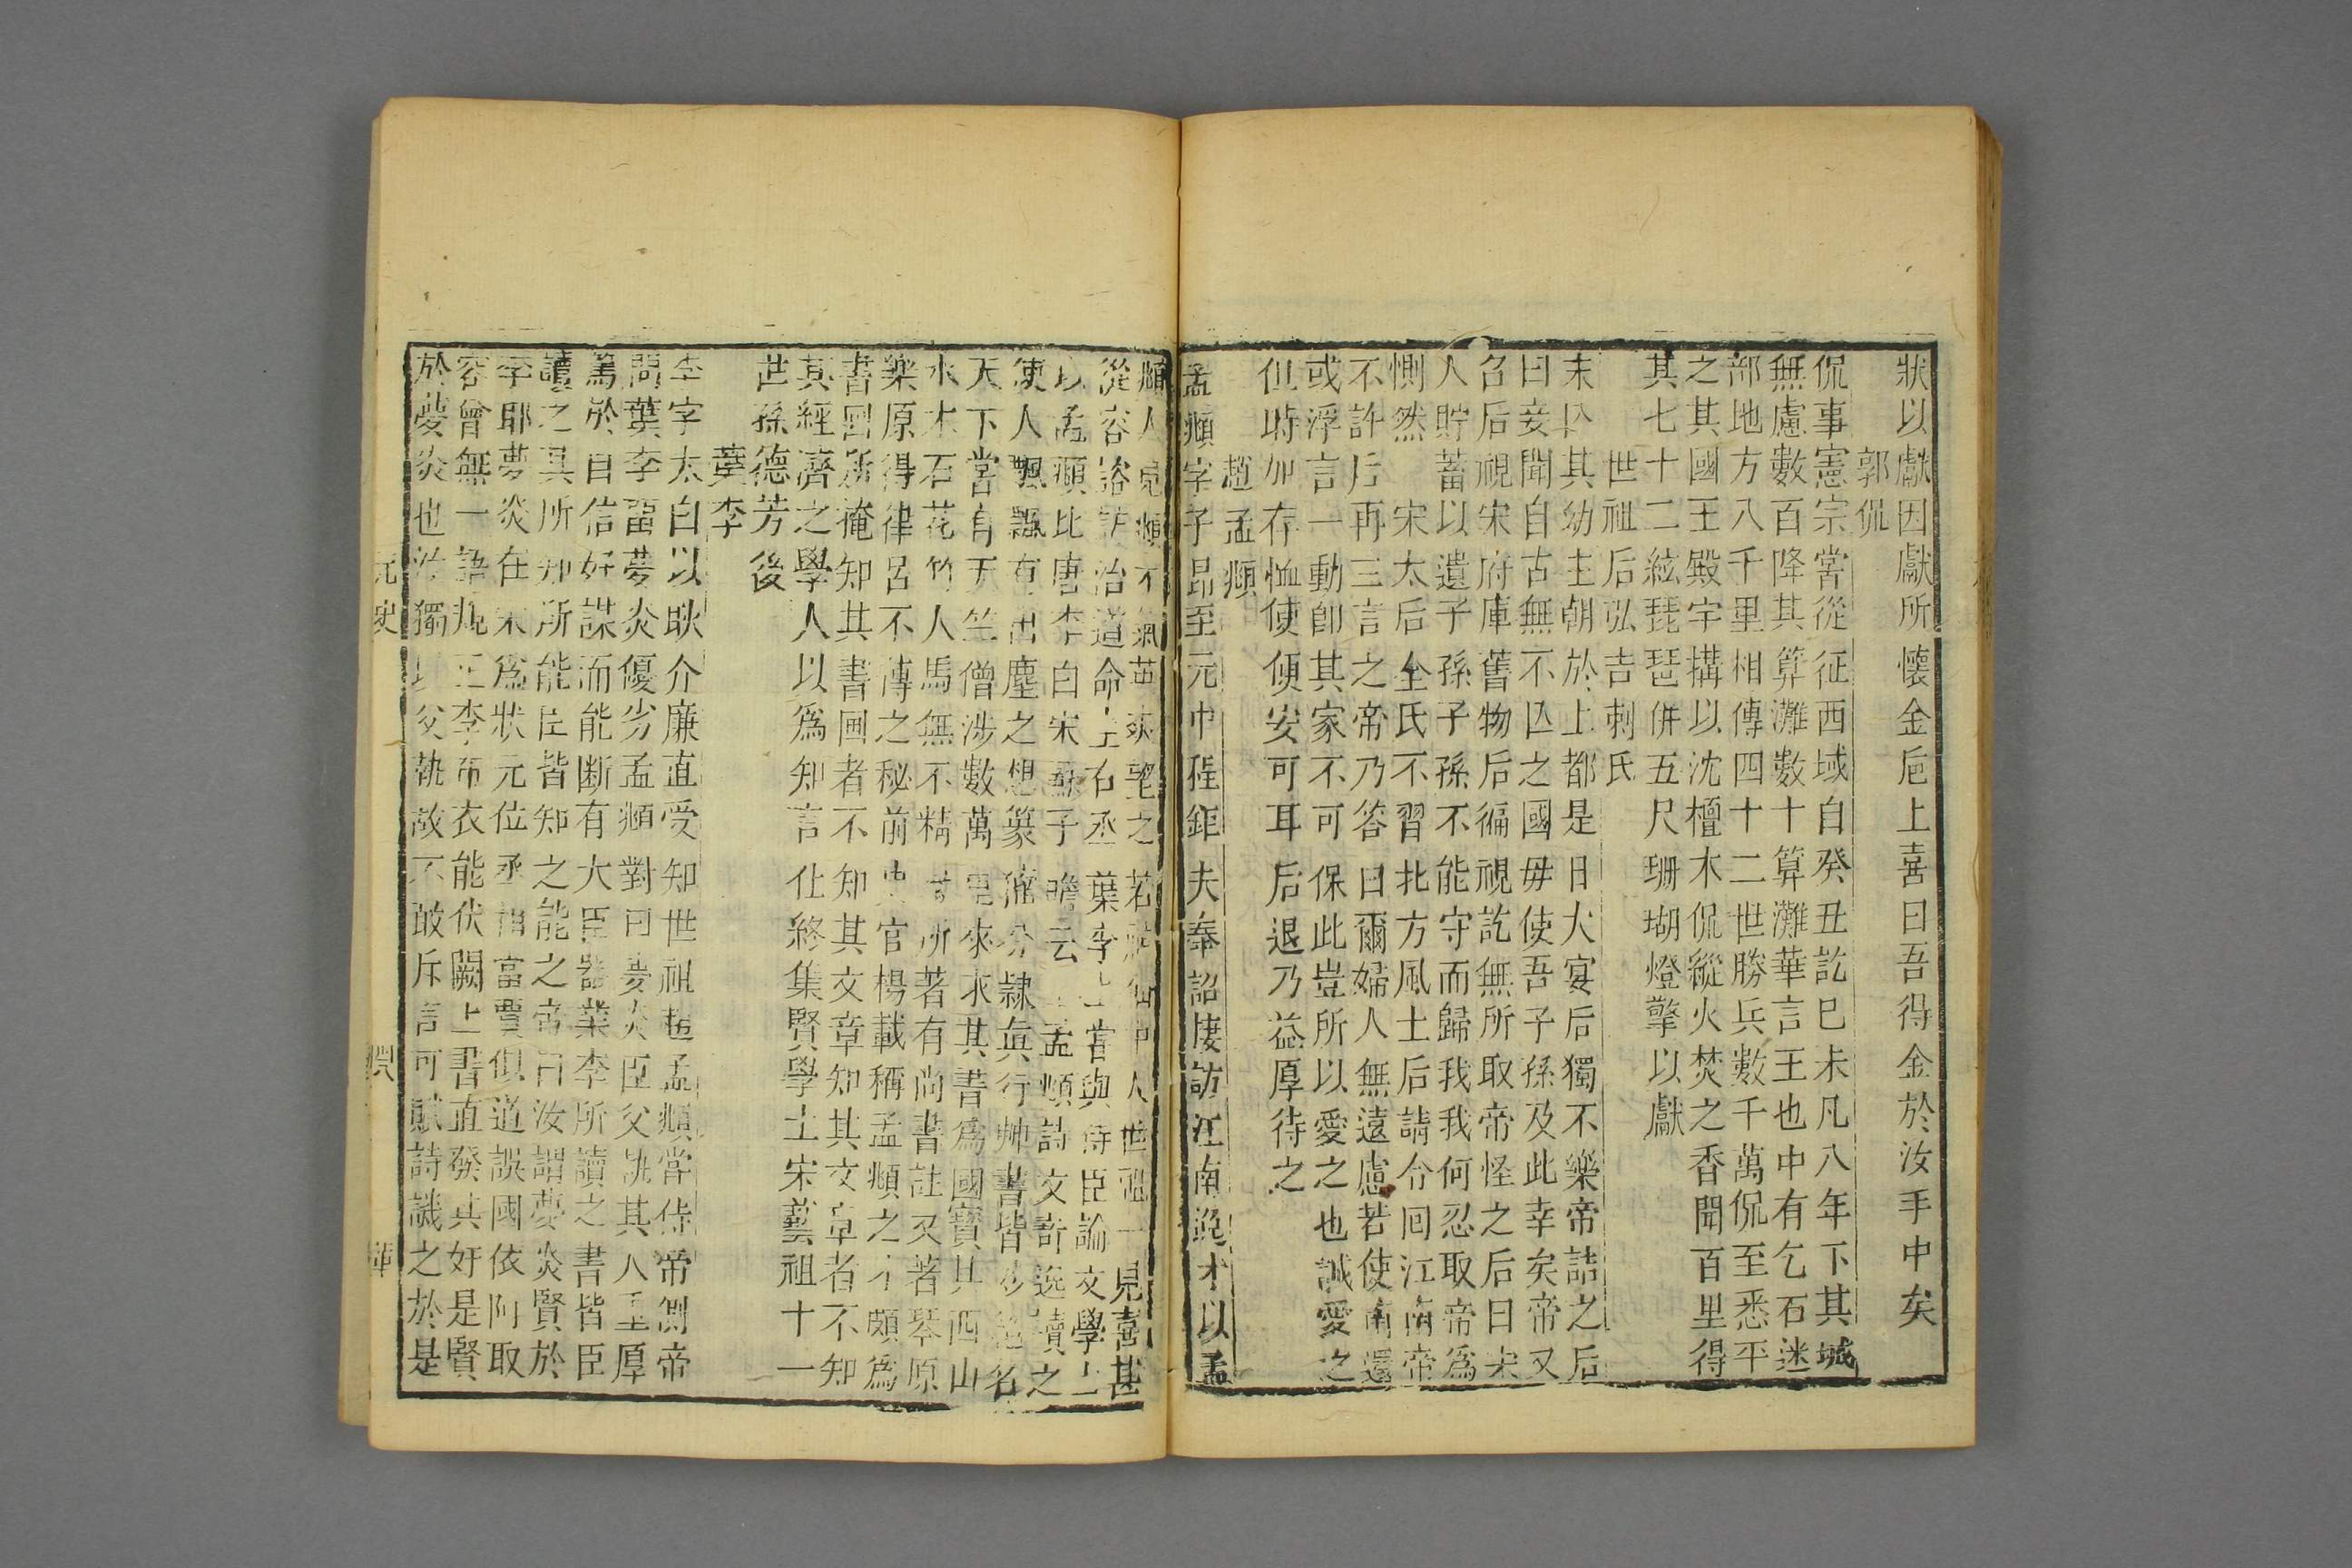 狀以獻因獻所懷金巵上喜曰吾得金於汝手中矣
郭侃
侃事憲宗嘗從征西域自癸丑訖巳未凡八年下其城
無慮數百降其算灘數十算灘華言王也中有乞石迷
部地方八千里相傳四十二世勝兵數千萬侃至悉平
之其國王殿宇搆以沈檀木侃縱火焚之香聞百里得
其七十二絃琵琶併五尺珊瑚燈擎以獻
世祖后弘吉剌氏
宋亡其幼主朝於上都是日大宴后獨不樂帝詰之后
曰妾聞自古無不亾之國毋使吾子孫及此幸矣帝又
召后視宋府庫舊物后徧視訖無所取帝怪之后曰宋
人貯蓄以遺子孫子孫不能守而歸我我何忍取帝爲
惻然　宋太后全氏不習北方風土后請令回江南帝
不許后再三言之帝乃答曰爾婦人無遠慮若使南還
或浮言一動卽其家不可保此豈所以愛之也誠愛之
但時加存恤使便安可耳后退乃益厚待之
趙孟頫
孟頫字子昂至元中程鉅夫奉詔搜訪江南逸才以孟
頫入見頫才氣英邁望之若神仙中人世祖一見喜甚
從容諮訪治道命坐右丞葉李上嘗與侍臣論文學士
以孟頫比唐李白宋蘇子瞻云　孟頫詩文許逸讀之
使人飄飄有出塵之想篆籀分隸眞行艸書皆妙絕名
天下嘗有天竺僧涉數萬里來求其書爲國寶其画山
水木石花竹人馬無不精　所著有尚書註又著琴原
樂原得律呂不傳之秘前史官楊載稱孟頫之才頗爲
書畫所掩知其書画者不知其文章知其文章者不知
其經濟之學人以爲知言仕終集賢學士宋藝祖十一
世孫德芳後
葉李
李字太白以耿介廉直受知世祖趙孟頫嘗侍帝側帝
問葉李畱夢炎優劣孟頫對曰夢炎臣父執其人重厚
篤於自信好謀而能断有大臣器葉李所讀之書皆臣
讀之其所知所能臣皆知之能之帝曰汝謂夢炎賢於
李耶夢炎在宋爲狀元位丞相當賈似道誤國依阿取
容曾無一語規正李布衣能伏闕上書直發其奸是賢
於夢炎也汝獨以父執故不敢斥言可賦詩譏之於是
元史